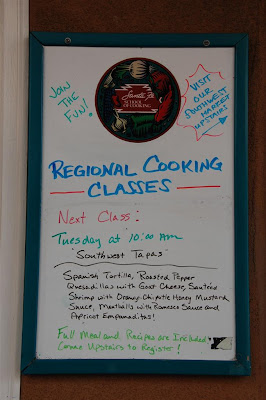 JOIN
THE
FUN!
Santa Fe
SCHOOL
OF COOKING
VISIT
OUR
SOUTHWEST
MARKET
UPSTAIRS
REGIONAL COOKING
CLASSES
Next Class:
Tuesday at 10:00 AM
Southwest Tapas
Spanish Tortilla, Roasted Pepper
Quesadillas with Goat Cheese, Sautéed
Shrimp with Orange-Chipotle Honey Mustard
Sauce, Meatballs with Romesco Sauce and
Apricot Empanaditas!
Full Meal and Recipes are Included
Come Upstairs to Register!